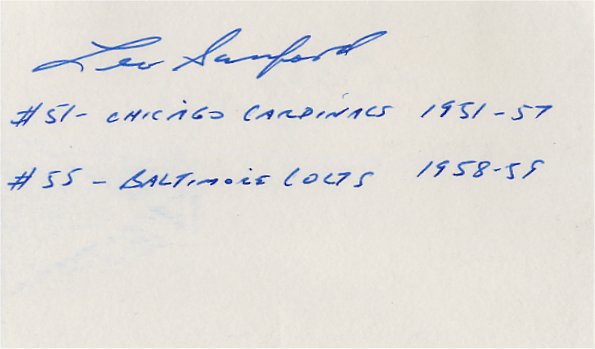 Leo Sanford
#51- CHICAGO CARDINALS 1951-57
#55 - BALTIMORE COLTS 1958-59